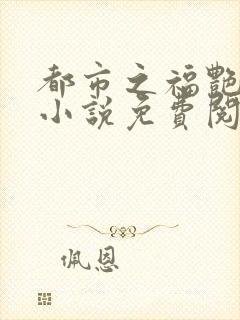 都市之福艷
小說免費閱
佩恩